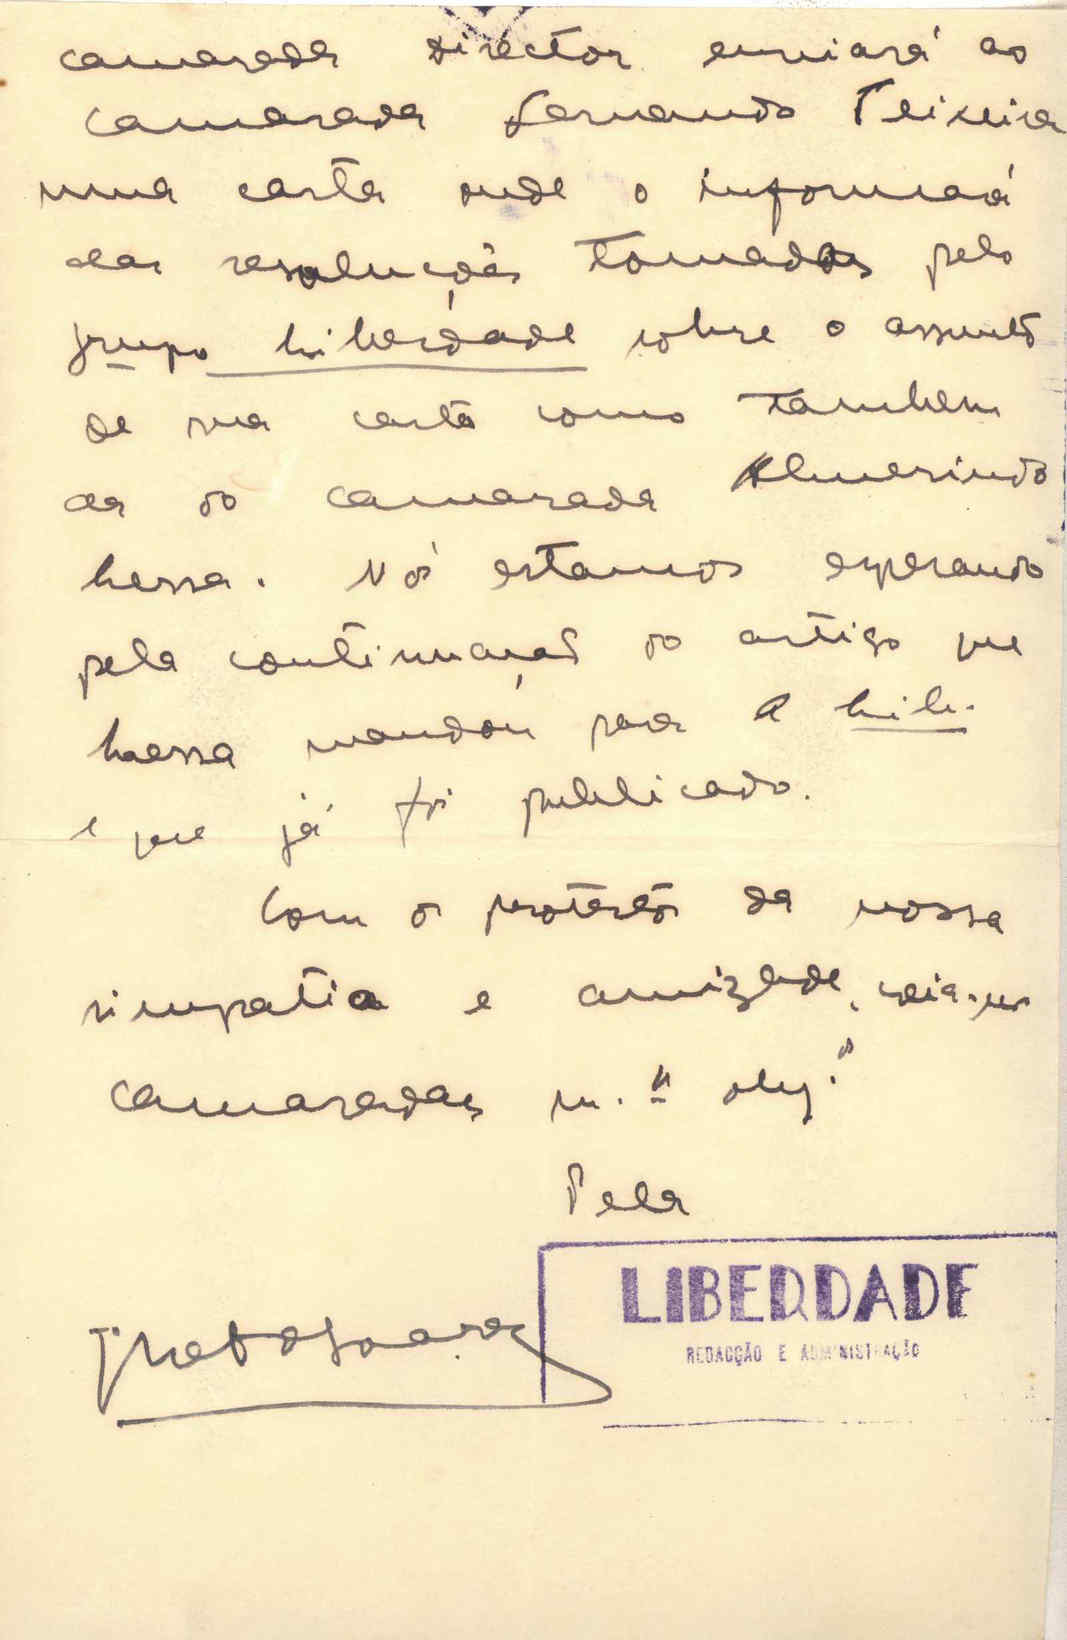 camarada director enviará ao
camarada Fernando Teixeira
uma carta onde o informará
das resoluções tomadas pelo
grupo Liberdade sobre o assunto
de sua carta como tambem
da do camarada Almerindo
Lessa. Nós estamos esperando
pela continuação do artigo que
Lessa mandou para A Lib.
e que já foi publicado.
Com os protestos da nossa
simpatia e amizade, creia-nos
camaradas m.to obg.os
Pela
LIBERDADE
REDACÇÃO E ADMINISTRAÇÃO